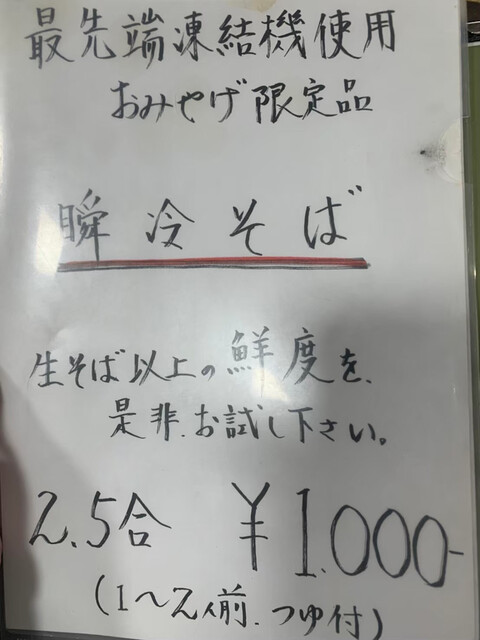 最先端凍結機使用
おみやげ限定品
瞬冷そば
生そば以上の鮮度を、
是非、お試し下さい。
2.5合 ¥1.000-
(1〜2人前、つゆ付)